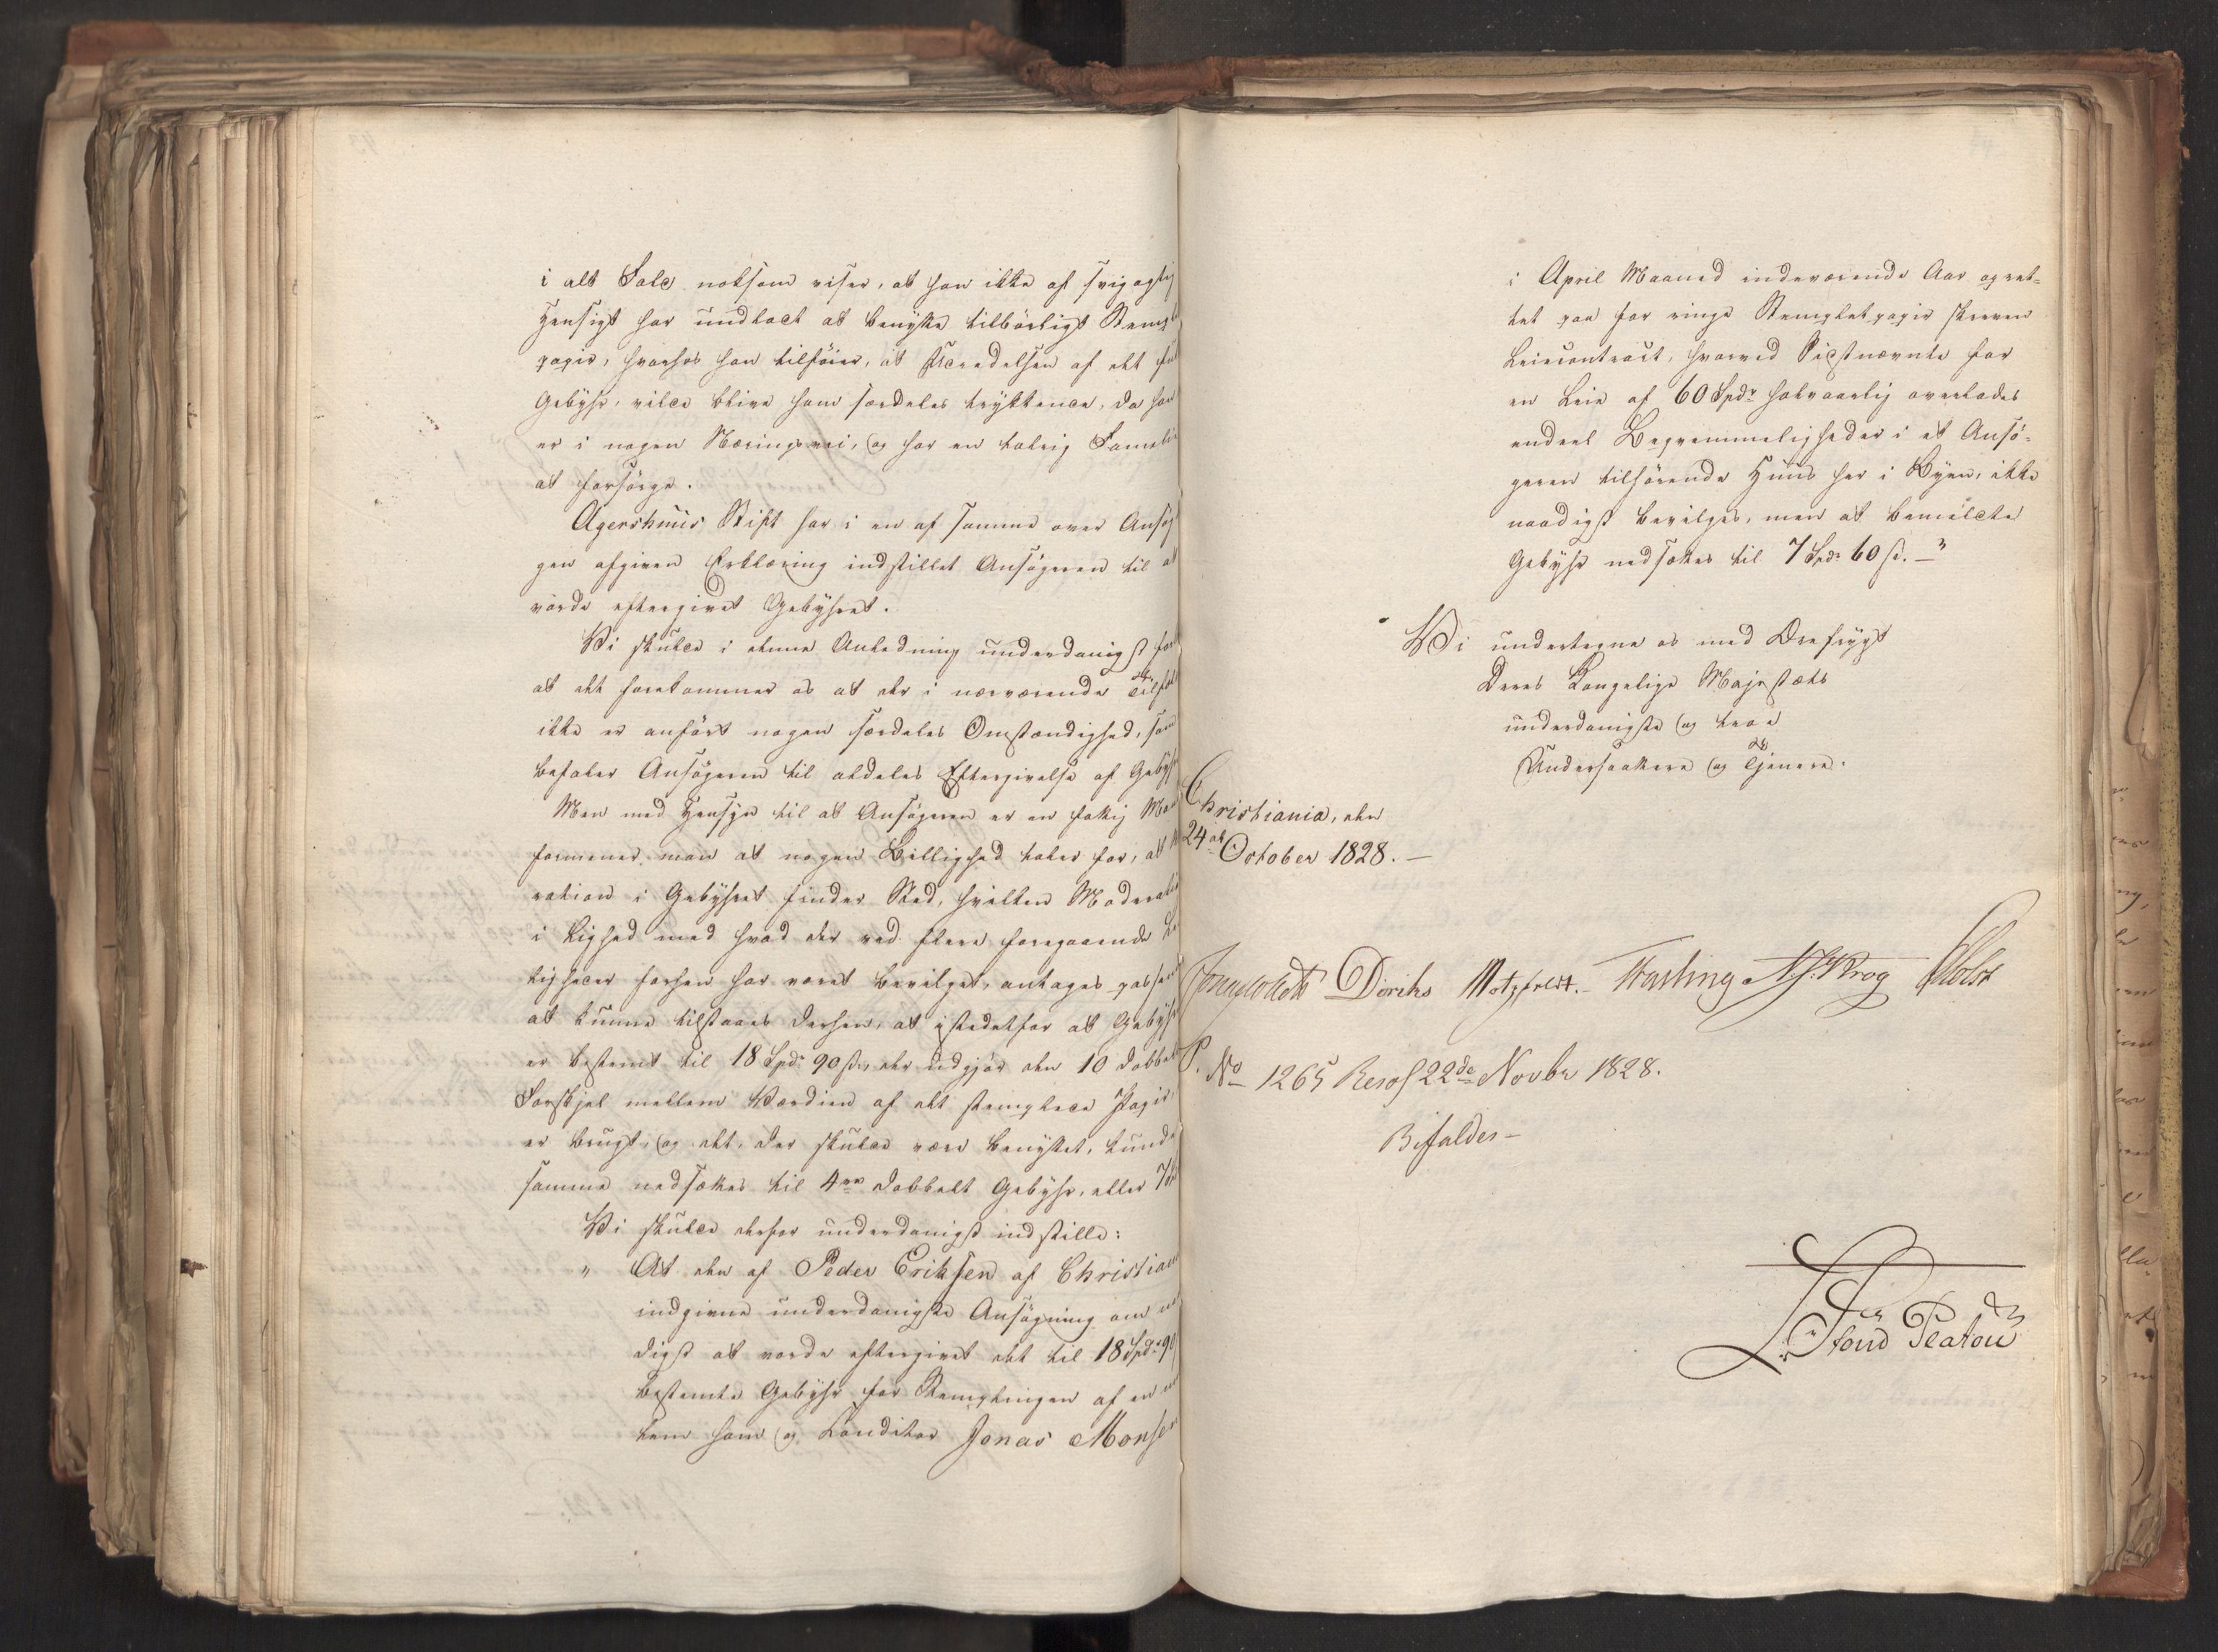 i alt Fald noksom viser, at han ikke af svigagtig
Hensigt har undladt at benytte tilbörligt Stempl
papir, hvorhos han tilföier, at Udredelsen af det
Gebyhr, vilde blive ham særdeles trykkende, da han
er i nogen Næringsvei, og har en talrig Familie
at forsörge.
Agershuus Stift har i en af samme over Ansög
gen afgiven Erklæring indstillet Ansögeren til at
vorde eftergivet Gebyhret.
Vi skulde i denne Anledning underdanigst for
at det forekommer os at der i nærværende Tilfæl
ikke er anfört nogen særdeles Omstændighed, som
befoier Ansögeren til aldeles Eftergivelse af Gebyhr
Men med Hensyn til at Ansögeren er en fattig Man
formener man at nogen Billighed taler for, at
ration i Gebyhret finder Sted, hvilken Moderatio
i Lighed med hvad der ved flere foregaaende Le
ligheder forhen har været bevilget, antages passend
at kunne tilstaaes derhen, at istedetfor at Gebyhr
er bestemt til 18 Spdr 90 s, der udgjör den 10 dobbelt
Forskjel mellem Værdien af det stemplede Papir,
er brugt, og det, der skulde være benyttet, kunde
samme nedsættes til 4re dobbelt Gebyhr, eller 7
Vi skulde derfor underdanigst indstille:
" At den af Peder Eriksen af Christian
indgivne underdanigste Ansögning om
digst at vorde eftergivet det til 18 Spdr 90
bestemte Gebyhr for Stemplingen af en
lem ham og Conditor Jonas Monsen
i April Maaned indeværende Aar opret-
tet paa for ringe Stempletpapir skreven
Leiecontract, hvorved Sidstnævnte for
en Leie af 60 Spdr halvaarlig overlades
endeel Beqvemmeligheder i et Ansö-
geren tilhörende Huus her i Byen, ikke
naadigst bevilges, men at bemeldte
Gebyhr nedsættes til 7 Spdr 60 s. "
Vi undertegne os med Ærefrygt
Deres Kongelige Majestæts
underdanigste og troe
Undersaatter og Tjenere.
Christiania, den
24de October 1828.
Diriks Motzfeldt. Fasting Krog Holst
P. No 1265 Resol 22de Novbr 1828.
Bifaldes -
Platou